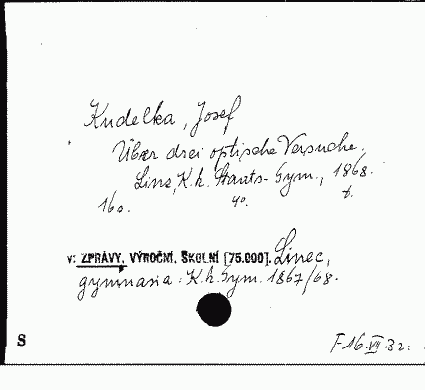 Kudelka, Josef
Über drei optische Versuche.
Linz, K.k. Staats-Gym., 1868.
16 s. 4o. t.
v: ZPRÁVY, VÝROČNÍ, ŠKOLNÍ [75.000]. Linec,
gymnasia: K.k. Gym. 1867/68.
S
F 16.VII.32.